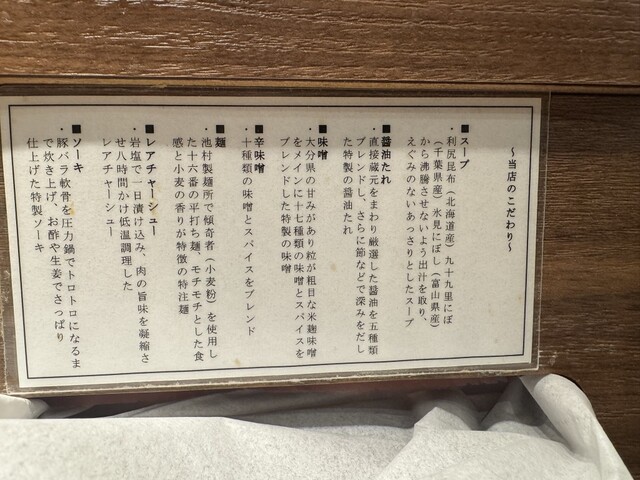 ～当店のこだわり～
■スープ
・利尻昆布（北海道産）九十九里にぼ
（千葉県産）氷見にぼし（富山県産）
から沸騰させないよう出汁を取り、
えぐみのないあっさりとしたスープ
■醤油たれ
・直接蔵元をまわり厳選した醤油を五種類
ブレンドし、さらに節などで深みをだし
た特製の醤油たれ
■味噌
・大分県の甘みがあり粒が粗目な米麹味噌
をメインに十七種類の味噌とスパイスを
ブレンドした特製の味噌
■辛味噌
・十種類の味噌とスパイスをブレンド
■麺
・池村製麺所で傾奇者（小麦粉）を使用し
た十六番の平打ち麺、モチモチとした食
感と小麦の香りが特徴の特注麺
■レアチャーシュー
・岩塩で一日漬け込み、肉の旨味を凝縮さ
せ八時間かけ低温調理した
レアチャーシュー
■ソーキ
・豚バラ軟骨を圧力鍋でトロトロになるま
で炊き上げ、お酢や生姜でさっぱり
仕上げた特製ソーキ